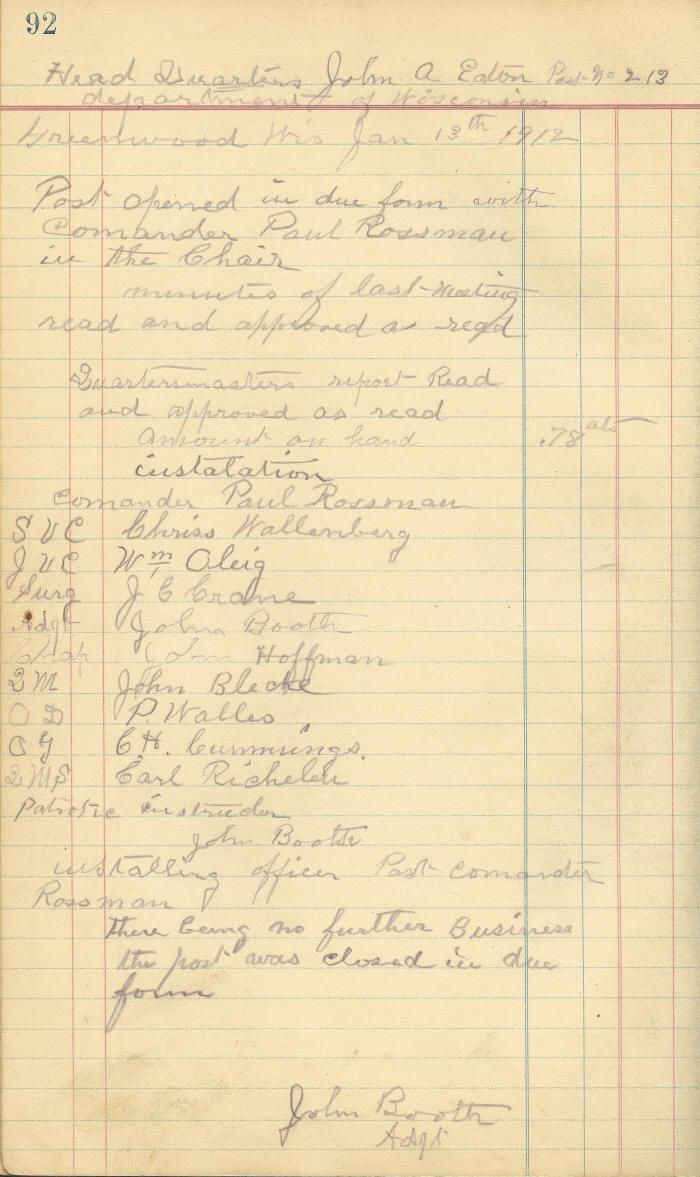 92
Head Quarters John A Eaton Post No 213
department of Wisconsin
Greenwood Wis Jan 13th 1912
Post opened in due form with
Comander Paul Rossman
in the Chair
minutes of last meeting
read and approved as read
Quartersmasters report Read
and approved as read
Amount on hand .78 cts
instalation
Comander Paul Rossman
S V C Chriss Wallenberg
J V C Wm Oleig
Surg J C Crane
Adgt John Booth
Chap Hoffman
Q M John Blecke
O D P. Walles
O G C H. Cummings.
Q M S Carl Richelen
Patrotic instructor
John Booth
installing officer Past Comander
Rossman
there being no further Business
the post was closed in due
form
John Booth
Adgt